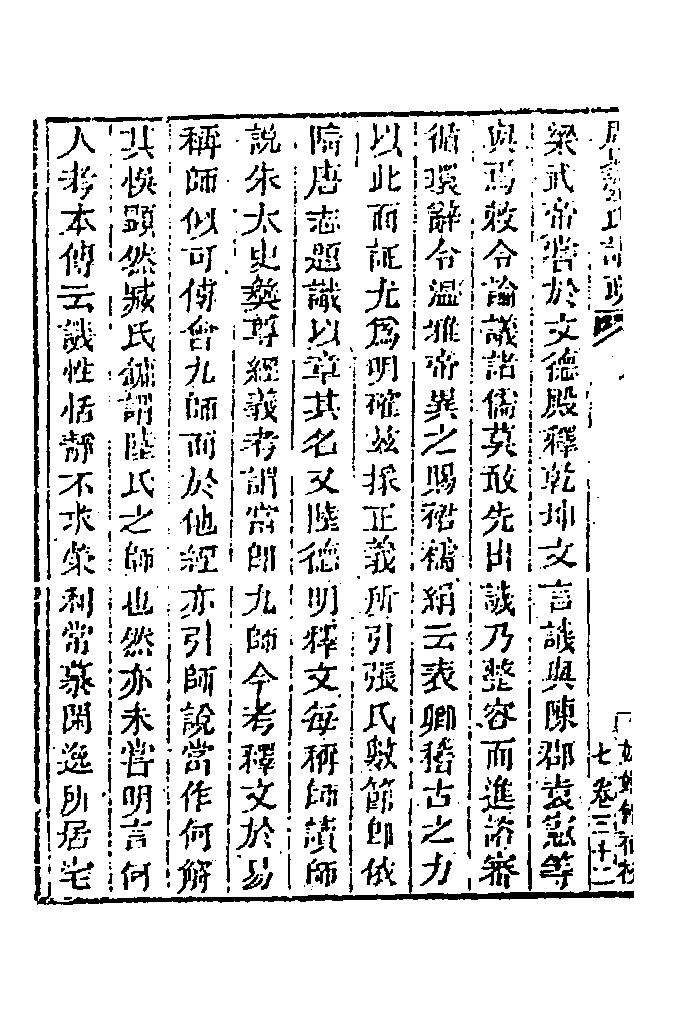 梁武帝嘗於文德殿釋乾坤文言譏與陳郡袁憲等
與焉敕令論議諸儒莫敢先出譏乃整容而進諮審
循環辭令溫雅帝異之賜裙襦絹云表卿稽古之力
以此而証尤爲明確茲採正義所引張氏數節即依
隋唐志題譏以章其名又陸德明釋文每稱師讀師
說朱太史彝尊經義考謂當即九師今考釋文於易
稱師似可傅會九師而於他經亦引師說當作何解
其悞顯然臧氏鏞謂陸氏之師也然亦未嘗明言何
人考本傳云譏性恬靜不求榮利常慕閑逸所居宅
七卷三十二